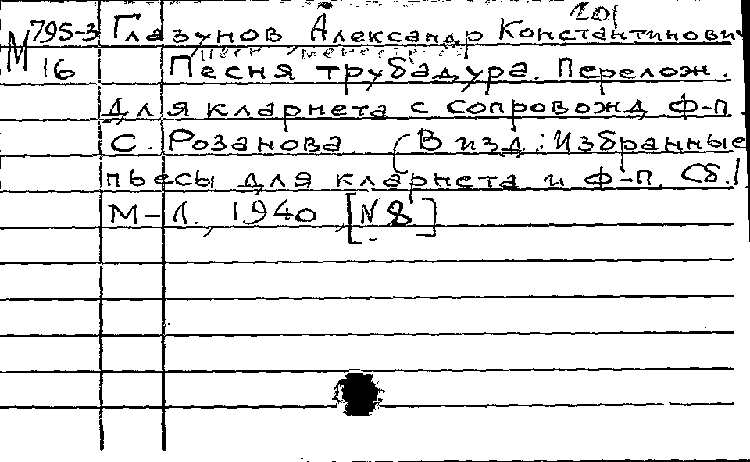 201
М 795-3 Глазунов Александр Константинович
16 Песня трубадура. Перелож.
для кларнета с сопровожд ф-п.
С. Розанова (В изд.: Избранные
пьесы для кларнета и ф-п. Сб. 1
М-Л., 1940, [N 8]